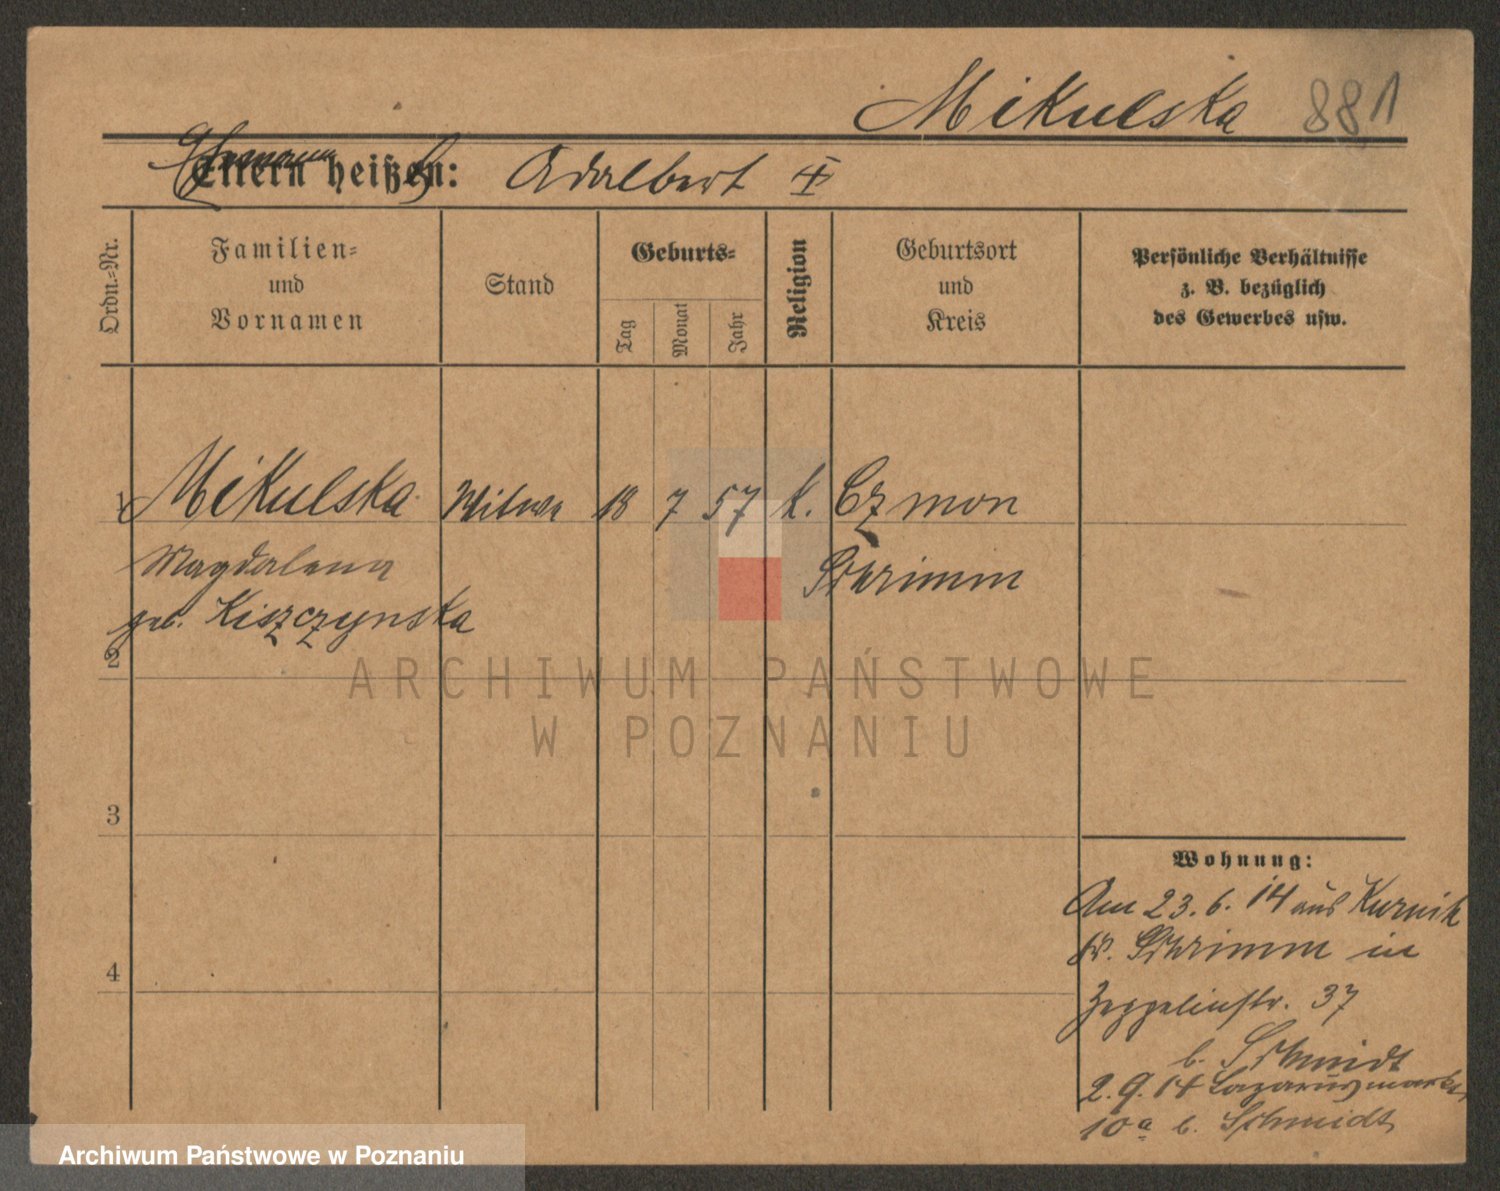 Mikulska 881
Ehemann
Eltern heißen: Adalbert
Ordn.=Nr.
Familien=
und
Vornamen
Stand
Geburts=
Tag
Monat
Jahr
Religion
Geburtsort
und
Kreis
Persönliche Verhältnisse
z. B. bezüglich
des Gewerbes usw.
1 Mikulska Witwe 18 7 57 k. Czmon
Magdalena Schrimm
geb. Kiszczynska
2
3
4
Wohnung:
Am 23.6.14 aus Kurnik
Kr. Schrimm in
Zeppelinstr. 37
b. Schmidt
2.9.14 Lazarusmarkt
10a b. Schmidt
ARCHIWUM PAŃSTWOWE
W POZNANIU
Archiwum Państwowe w Poznaniu